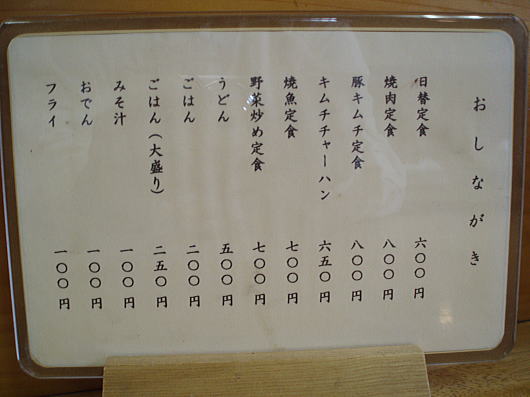 おしながき
日替定食 六〇〇円
焼肉定食 八〇〇円
豚キムチ定食 八〇〇円
キムチチャーハン 六五〇円
焼魚定食 七〇〇円
野菜炒め定食 七〇〇円
うどん 五〇〇円
ごはん 二〇〇円
ごはん（大盛り） 二五〇円
みそ汁 一〇〇円
おでん 一〇〇円
フライ 一〇〇円